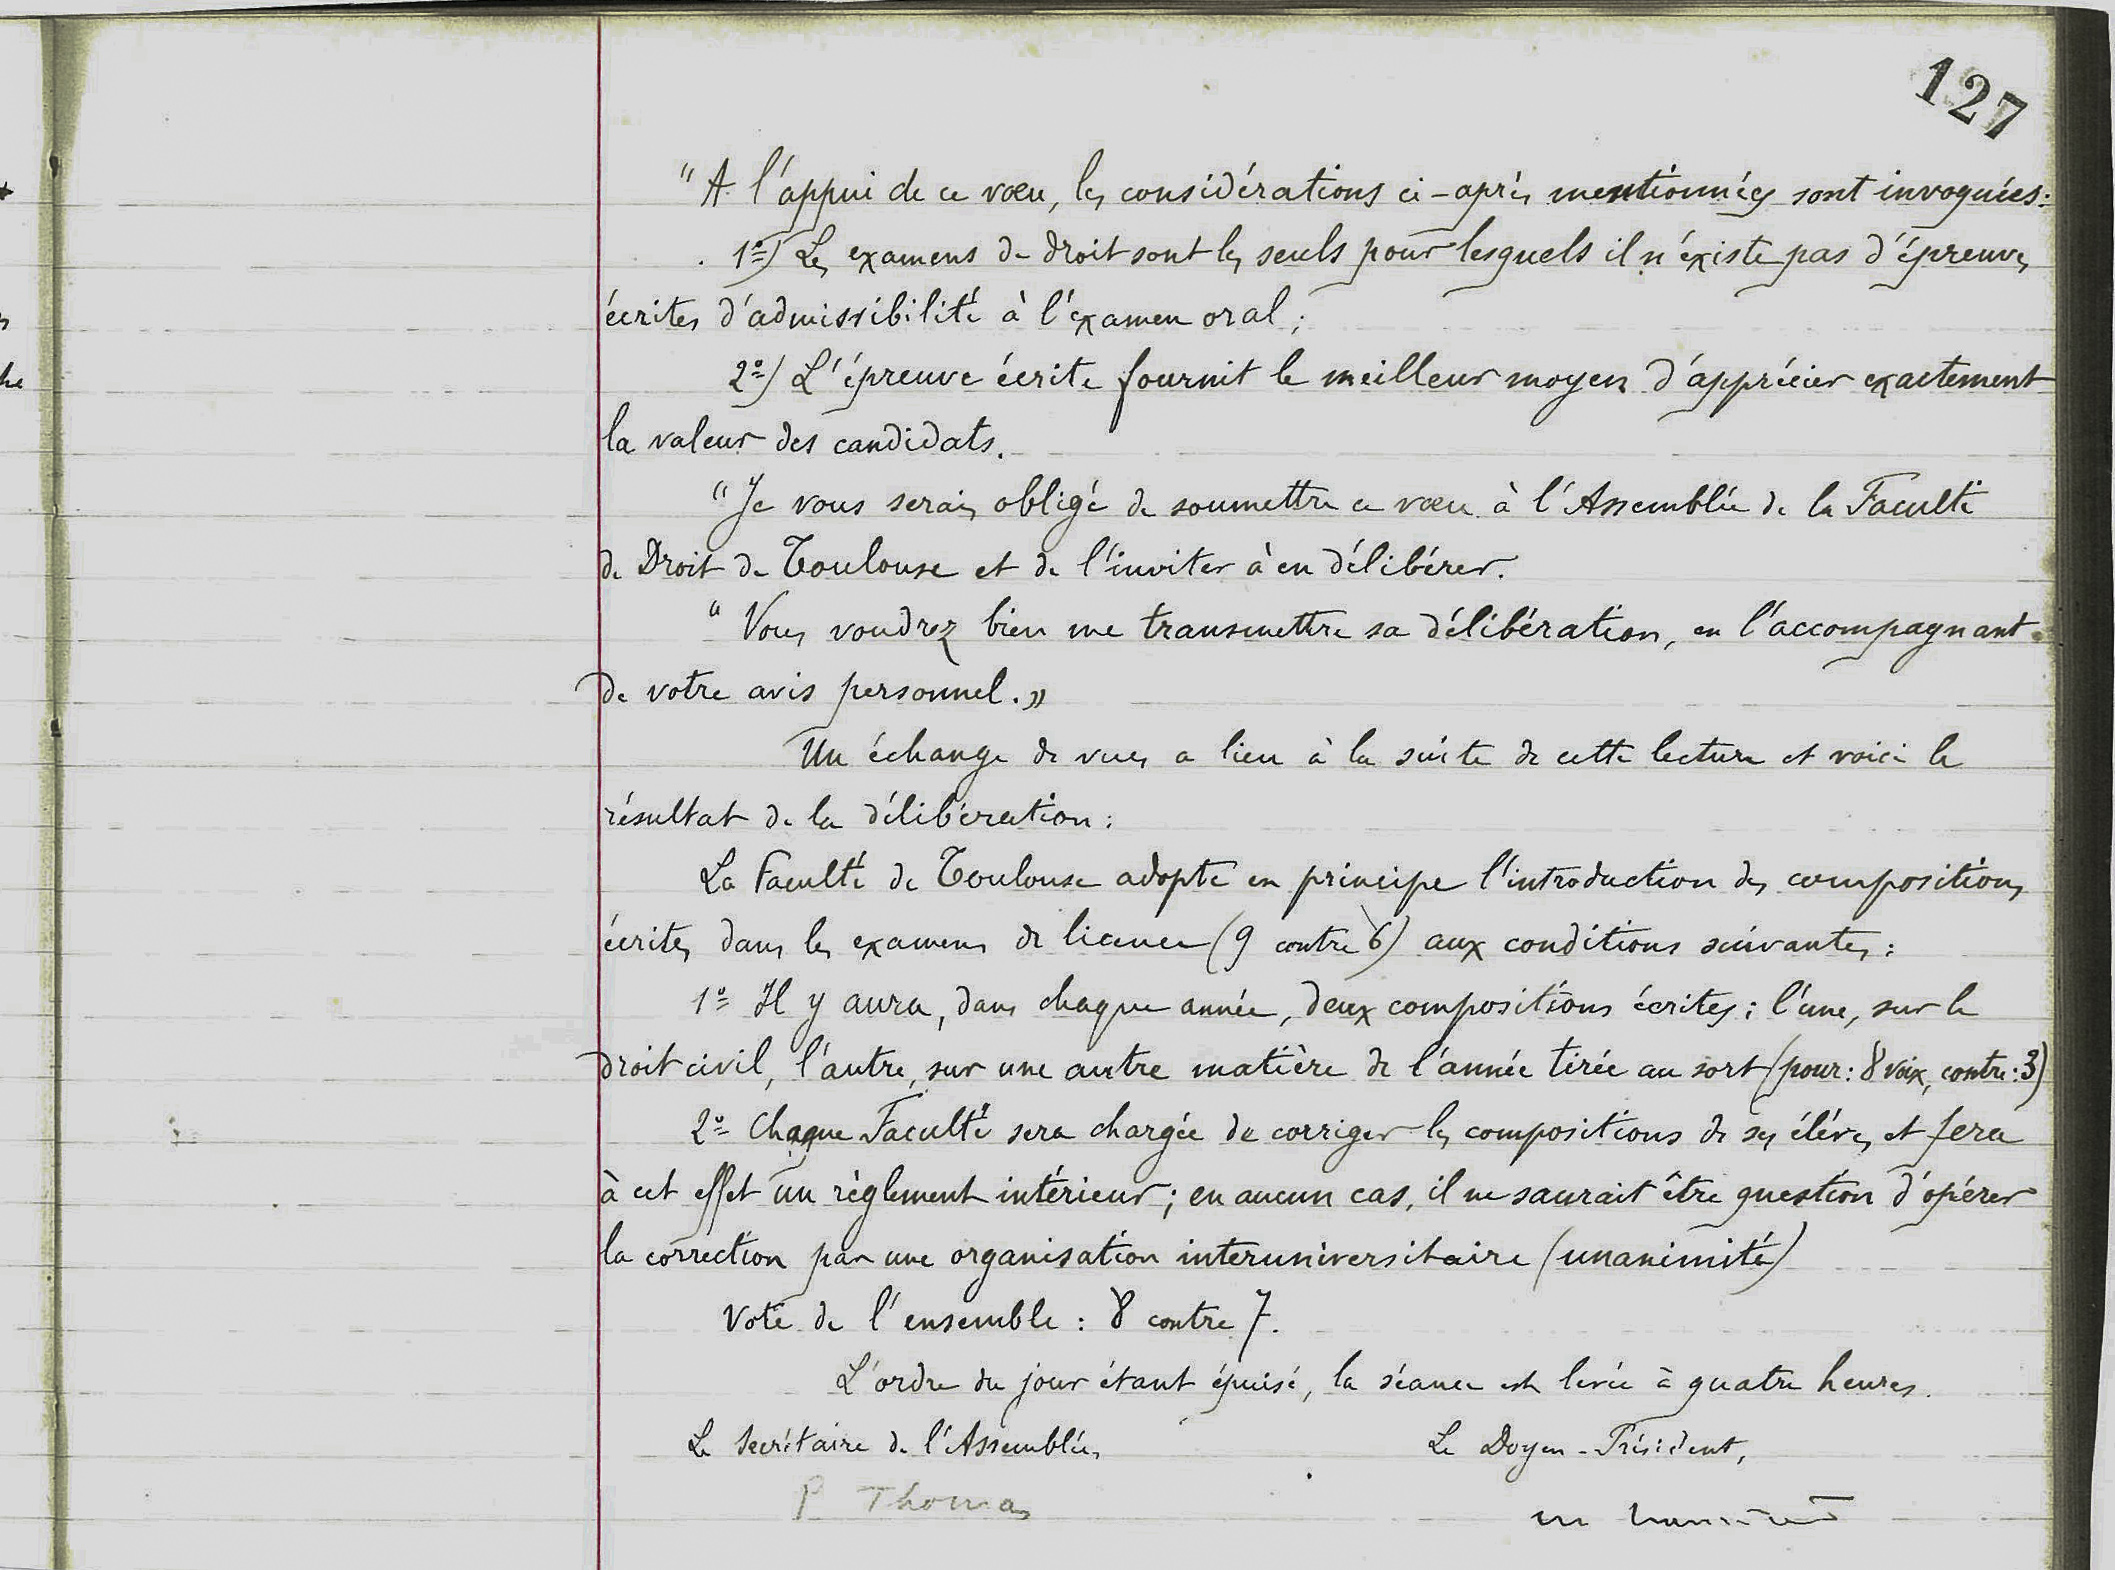 127
"A l'appui de ce vœu, les considérations ci-après mentionnées sont invoquées:
1º) Les examens de droit sont les seuls pour lesquels il n'existe pas d'épreuves
écrites d'admissibilité à l'examen oral;
2º) L'épreuve écrite fournit le meilleur moyen d'apprécier exactement
la valeur des candidats.
"Je vous serais obligé de soumettre ce vœu à l'Assemblée de la Faculté
de Droit de Toulouse et de l'inviter à en délibérer.
"Vous voudrez bien me transmettre sa délibération, en l'accompagnant
de votre avis personnel.»
Un échange de vues a lieu à la suite de cette lecture et voici le
résultat de la délibération:
La Faculté de Toulouse adopte en principe l'introduction des compositions
écrites dans les examens de licence (9 contre 6) aux conditions suivantes:
1º Il y aura, dans chaque année, deux compositions écrites; l'une, sur le
droit civil, l'autre, sur une autre matière de l'année tirée au sort (pour: 8 voix, contre: 3)
2º Chaque Faculté sera chargée de corriger les compositions de ses élèves et fera
à cet effet un règlement intérieur; en aucun cas, il ne saurait être question d'opérer
la correction par une organisation interuniversitaire (unanimité)
Vote de l'ensemble: 8 contre 7.
L'ordre du jour étant épuisé, la séance est levée à quatre heures.
Le Secrétaire de l'Assemblée, Le Doyen-Président,
P Thomas